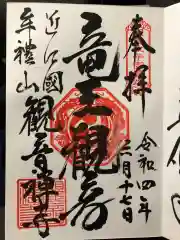 奉拝
令和四年
月十七日
竜王觀音
近江國
牟禮山
觀音禅寺